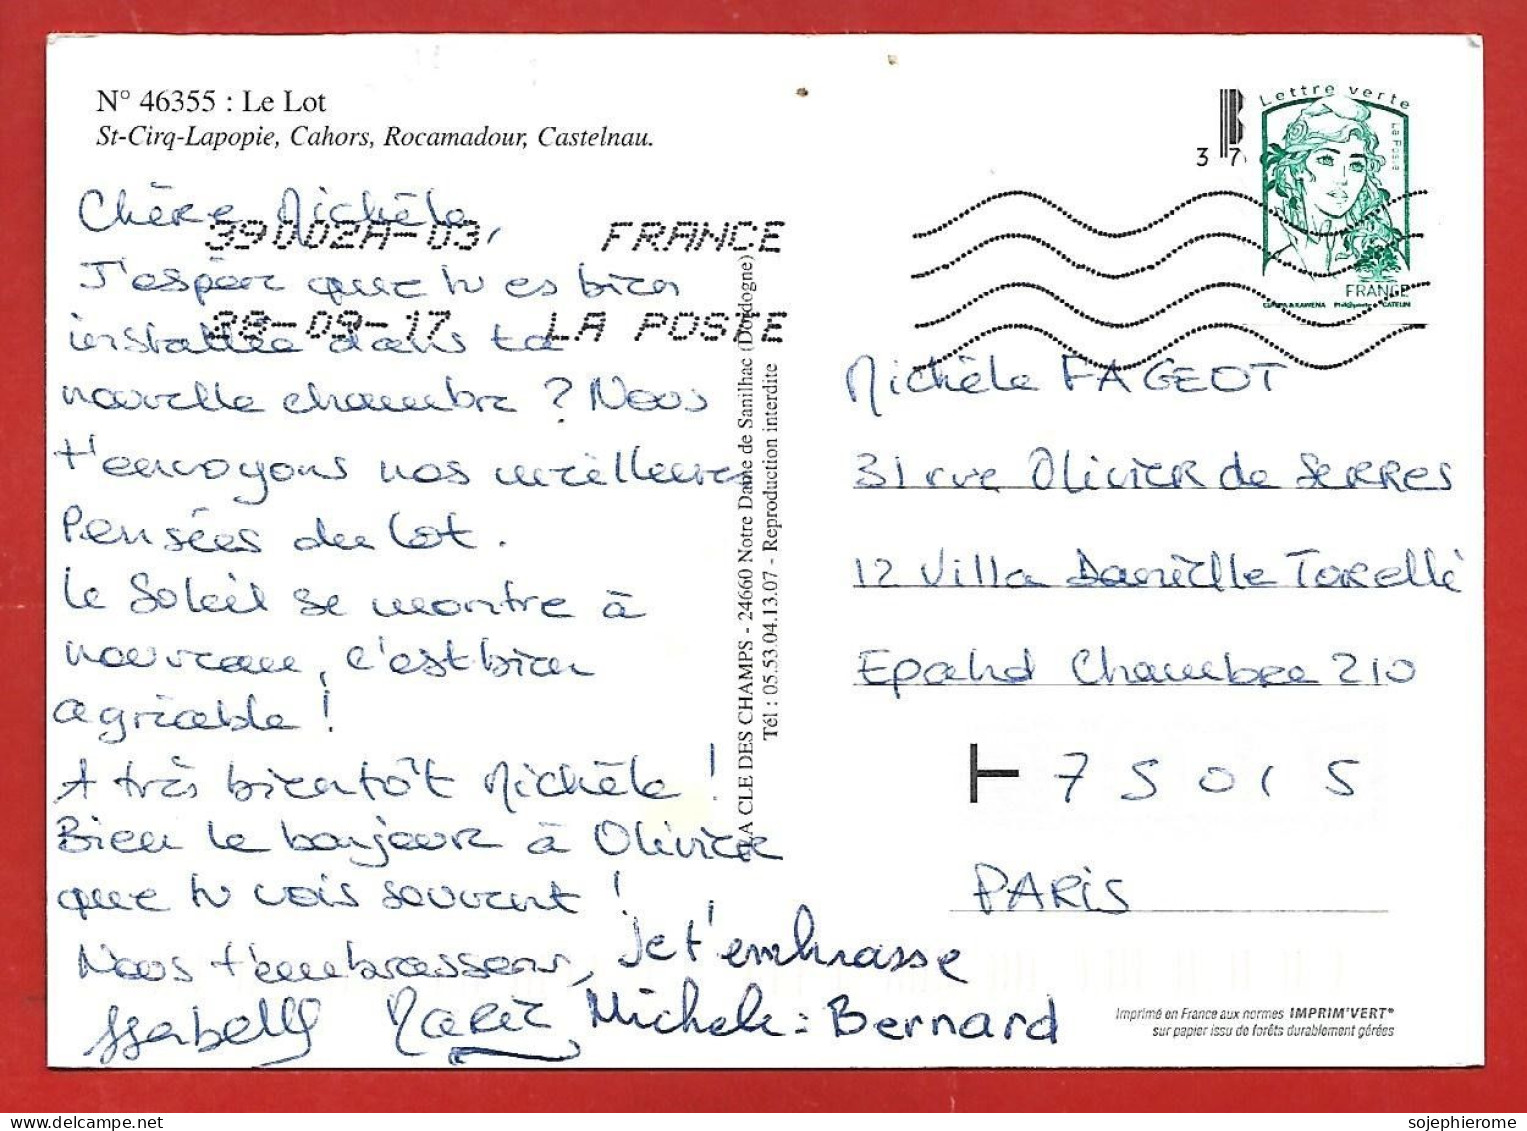 N° 46355 : Le Lot
St-Cirq-Lapopie, Cahors, Rocamadour, Castelnau.
Chère Michèle,
J'espèr que tu es bien
installée dans ta
nouvelle chambre ? Nous
t'envoyons nos meilleures
Pensées du Lot.
Le Soleil se montre à
nouveau, c'est bien
agréable !
A très bientôt Michèle !
Bien le bonjour à Olivier
que tu vois souvent !
Nous t'embrassons, Je t'embrasse
Isabelle Marie Michele : Bernard
39002A-03 FRANCE
28-09-17 LA POSTE
LA CLE DES CHAMPS - 24660 Notre Dame de Sanilhac (Dordogne)
Tél : 05.53.04.13.07 - Reproduction interdite
37
Lettre verte
La Poste
FRANCE
CIAPPA & KAWENA Phil@poste CATELIN
Michèle FAGEOT
31 rue Olivier de SERRES
12 Villa Danielle Torelli
Epahd Chambre 210
75015
PARIS
Imprimé en France aux normes IMPRIM'VERT®
sur papier issu de forêts durablement gérées
sojephierome